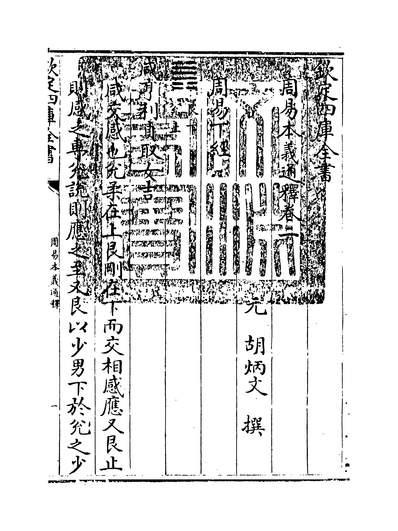 欽定四庫全書
周易本義通釋卷二
元 胡炳文 撰
周易下經
咸亨利貞取女吉
咸交感也兌柔在上艮剛在下而交相感應又艮止
則感之專兌說則應之至又艮以少男下於兌之少
欽定四庫全書
周易本義通釋
一